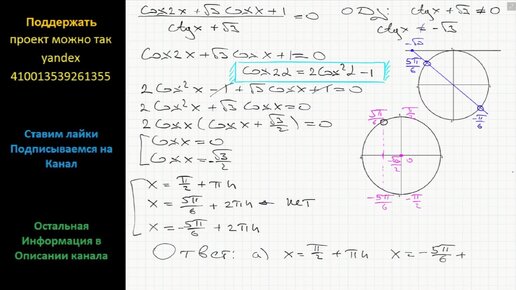 Поддержать
проект можно так
yandex
410013539261355
Ставим лайки
Подписываемся на
Канал
Остальная
Информация в
Описании канала
(cos2x + √3 cosx + 1) / (ctgx + √3) = 0
ОДЗ: ctgx + √3 ≠ 0
ctgx ≠ -√3
cos2x + √3 cosx + 1 = 0
cos2α = 2cos²α - 1
2cos²x - 1 + √3 cosx + 1 = 0
2cos²x + √3 cosx = 0
2cosx (cosx + √3/2) = 0
cosx = 0
cosx = -√3/2
x = π/2 + πn
x = 5π/6 + 2πn ← нет
x = -5π/6 + 2πn
Ответ: а) x = π/2 + πn x = -5π/6 +
-√3
5π/6
-π/6
5π/6
π/2
-√3/2
0
-5π/6
-π/2